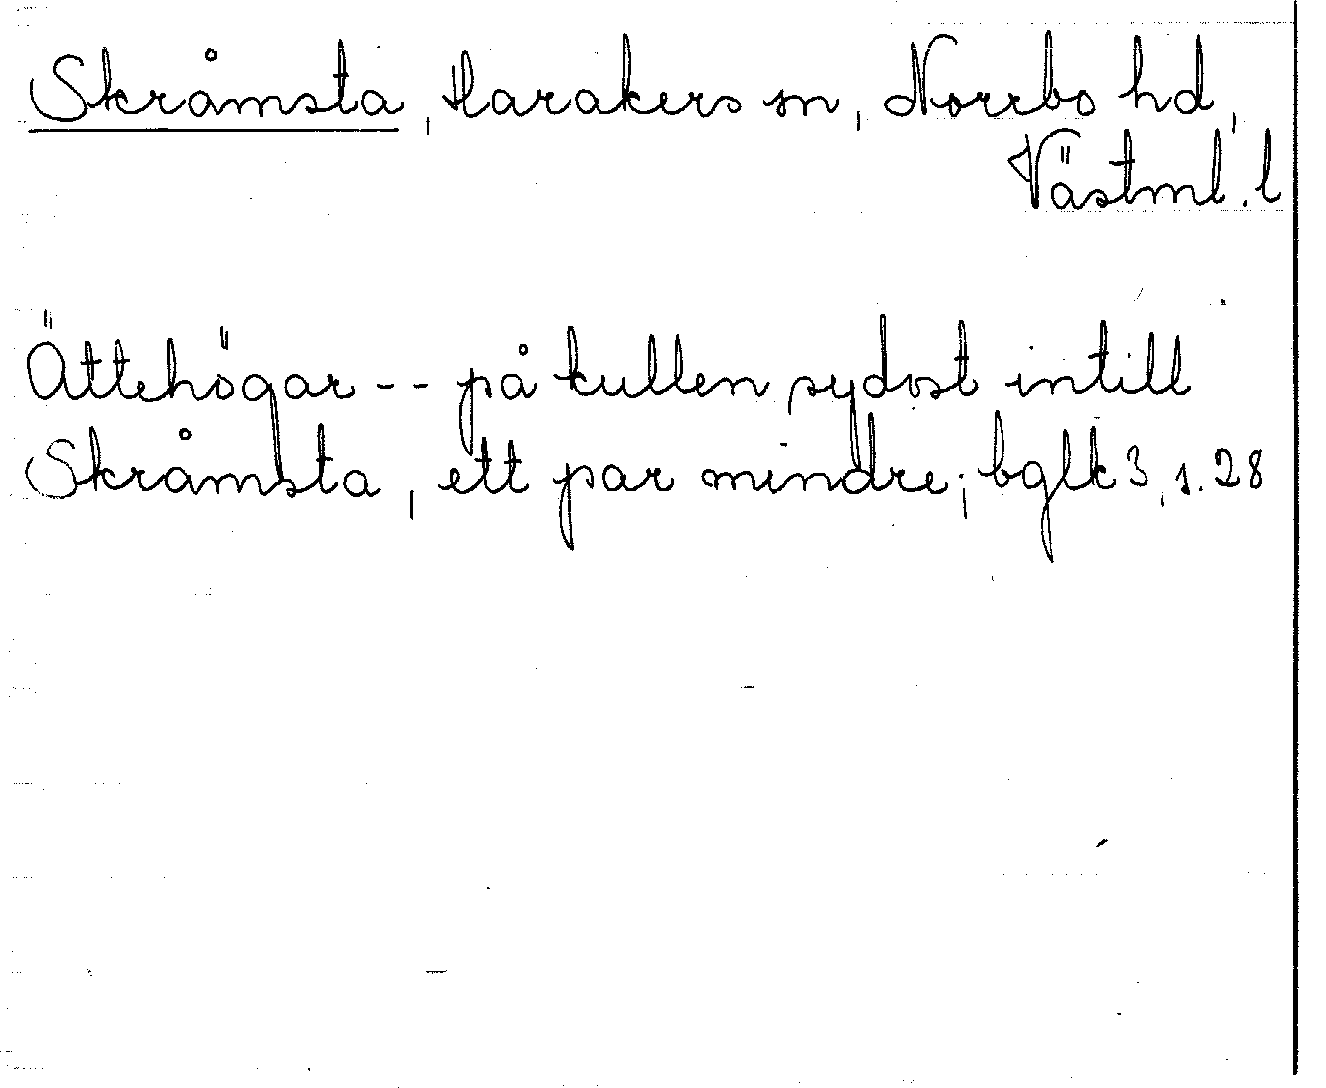 Skråmsta, Harakers sn, Norrbo hd,
Västml. l
Ättehögar -- på kullen sydost intill
Skråmsta, ett par mindre; bglk 3, s. 28